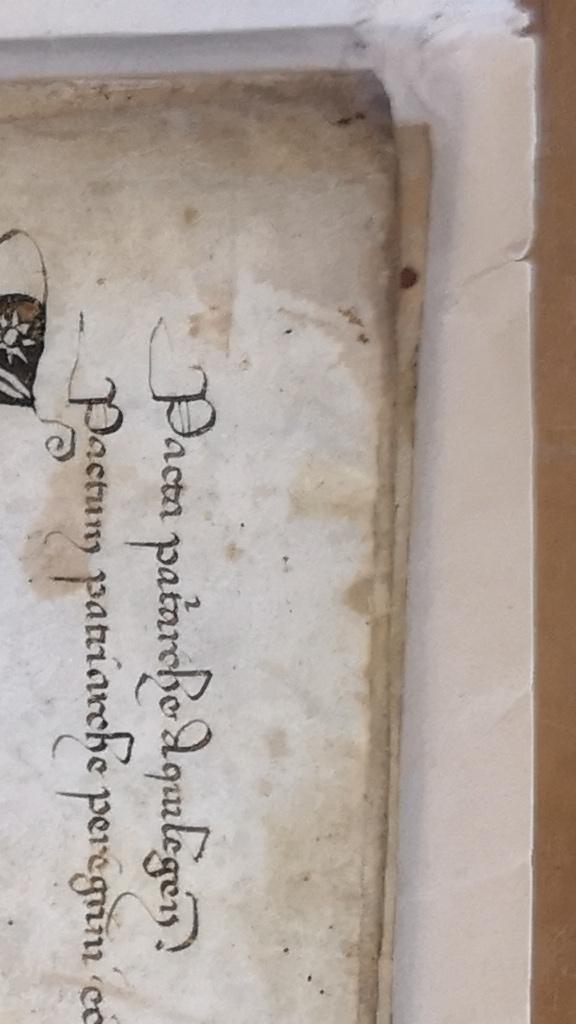 Pacta pat'arche Aquilegen'.
Pactum patriarche peregrini co